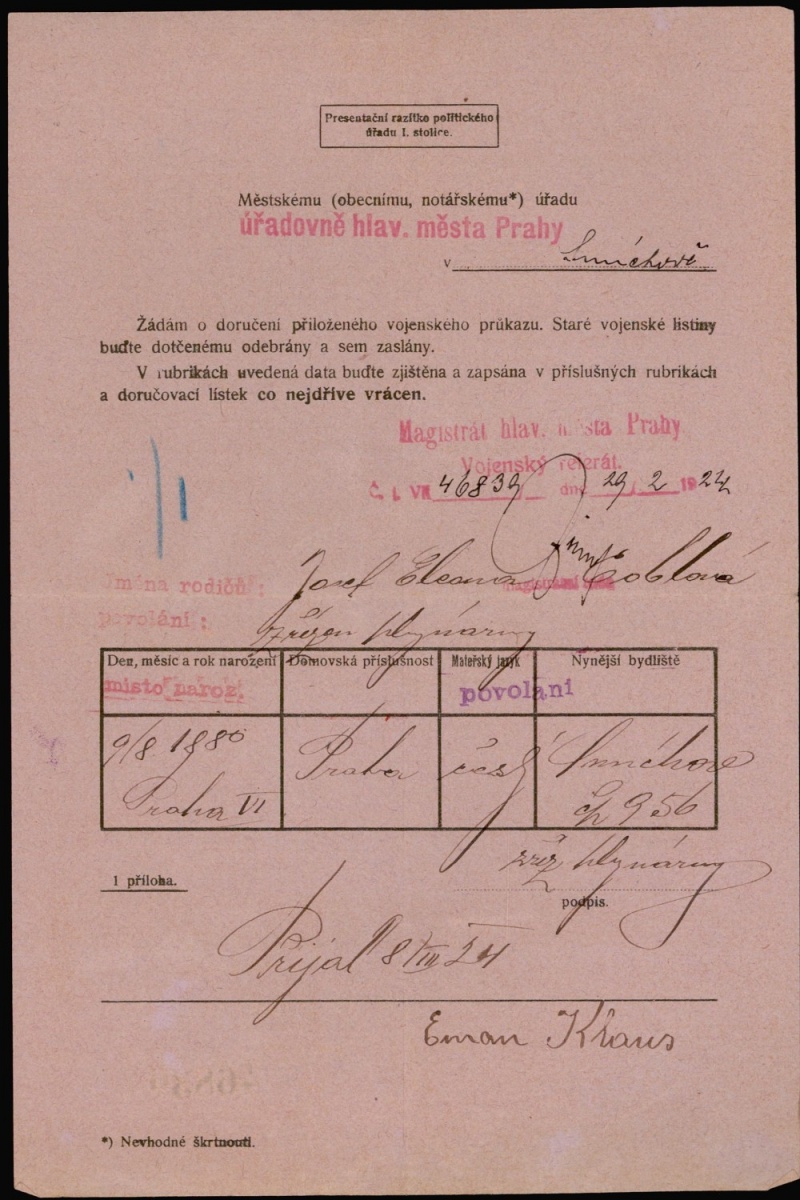 Presentační razítko politického
úřadu I. stolice.
Městskému (obecnímu, notářskému*) úřadu
úřadovně hlav. města Prahy
v Smíchově
Žádám o doručení přiloženého vojenského průkazu. Staré vojenské listiny
buďte dotčenému odebrány a sem zaslány.
V rubrikách uvedená data buďte zjištěna a zapsána v příslušných rubrikách
a doručovací lístek co nejdříve vrácen.
Magistrát hlav. města Prahy
Vojenský referát.
Č. j. VII 46839 dne 29/2 1924
Jména rodičů: Josef Eleonora
povolání: zřízen plynárny
Den, měsíc a rok narození Domovská příslušnost Mateřský jazyk Nynější bydliště
místo naroz. povolání
9/8. 1880 Praha český Smíchov
Praha VI čp 956
zříz plynárny
1 příloha.
podpis.
Prijal 8/III 24
Eman Kraus
*) Nevhodné škrtnouti.